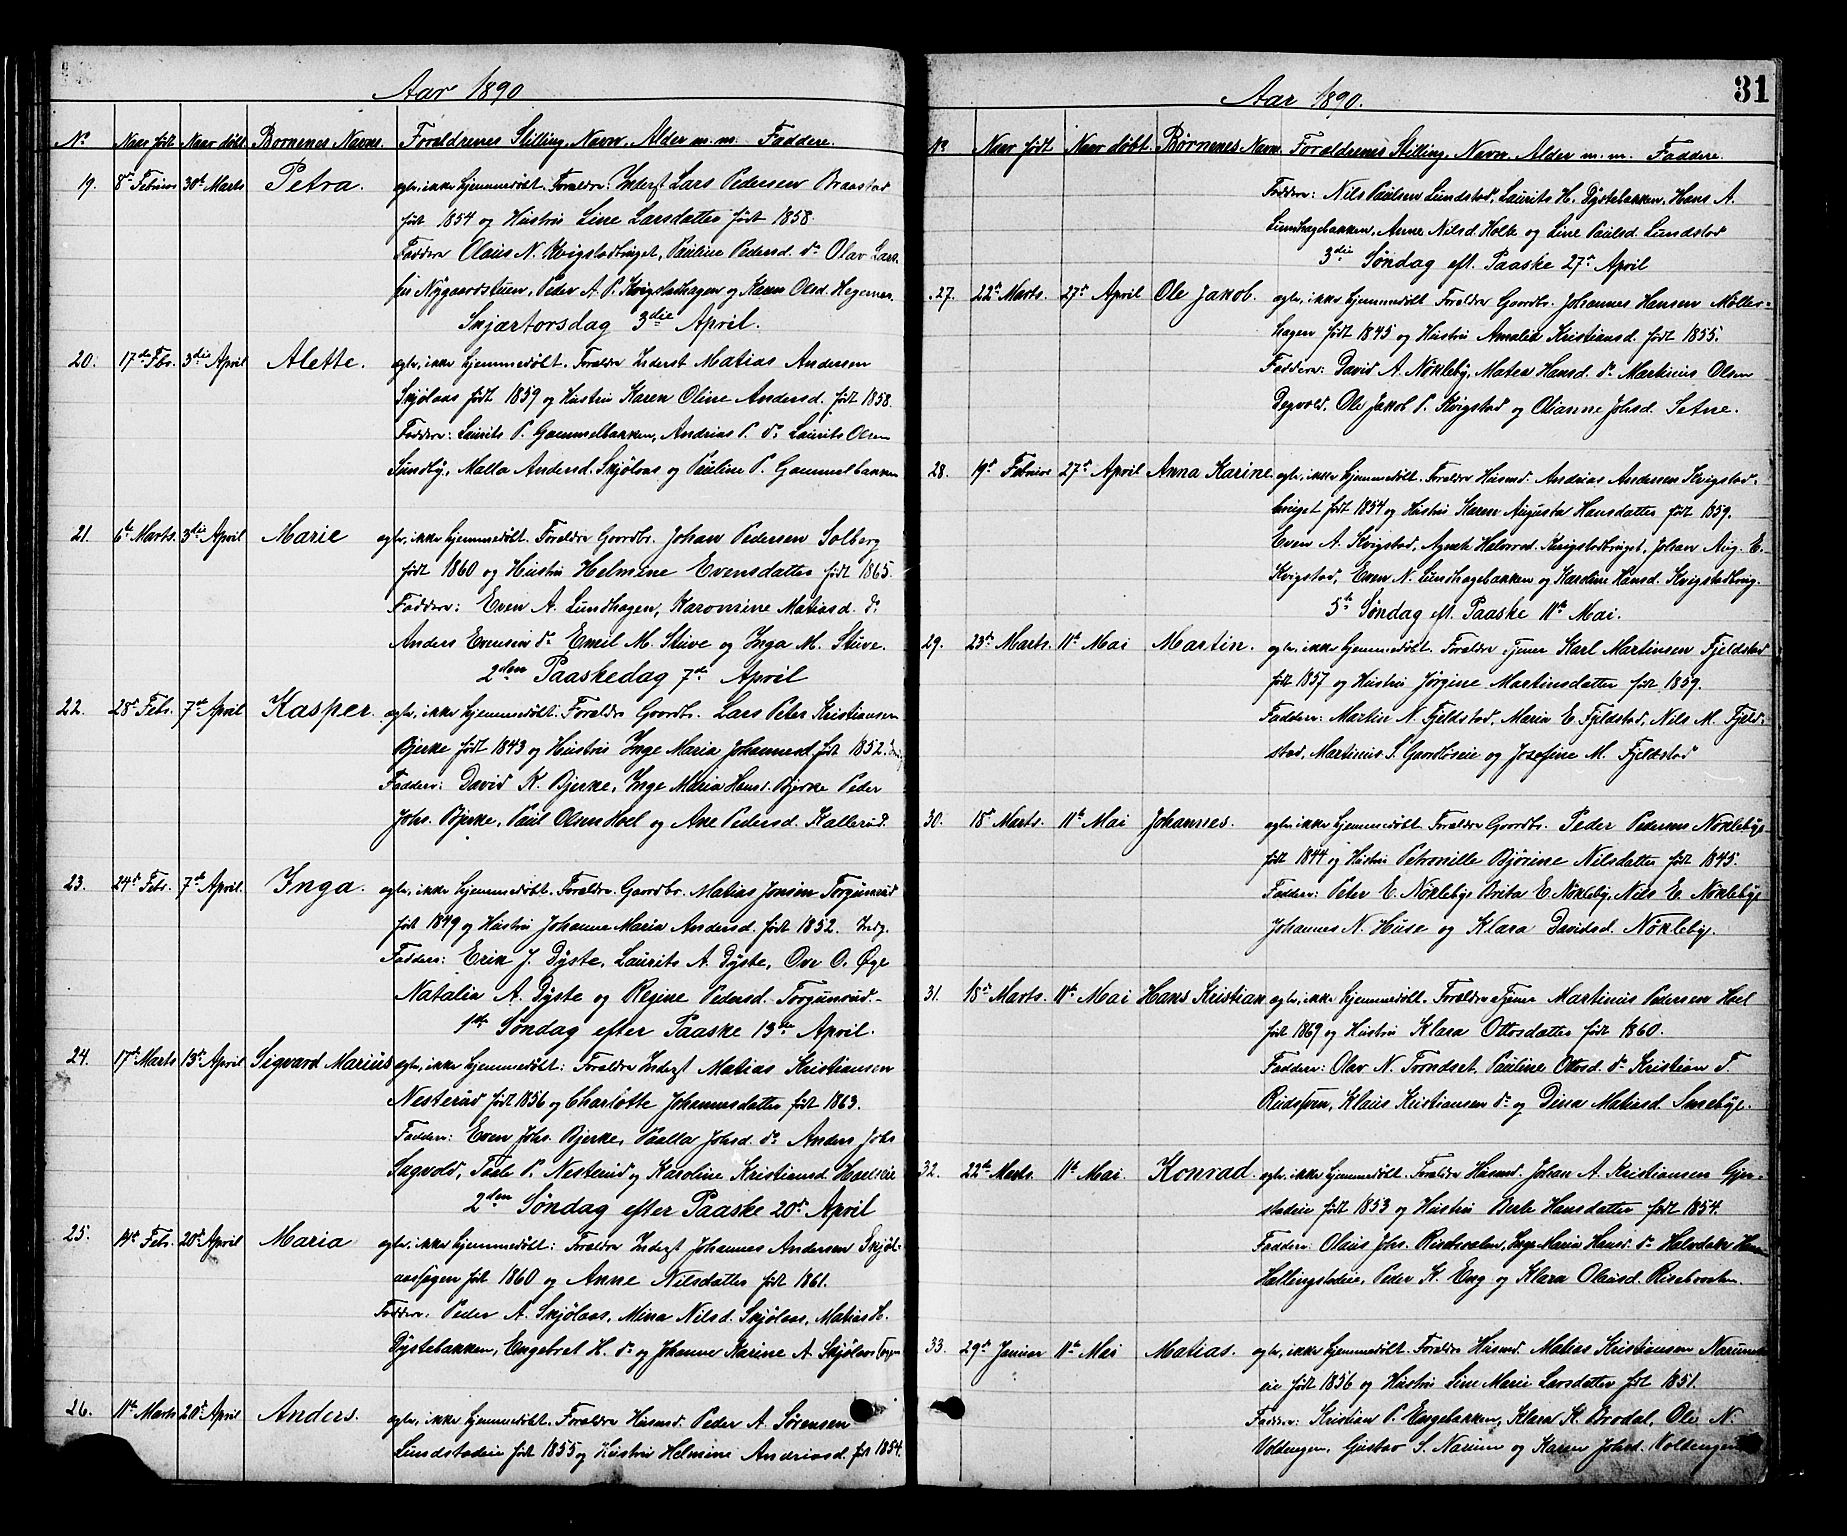 Aar 1890
No Naar født Naar døbt Børnenes Navne. Forældrenes Stilling, Navn, Alder m. m. Faddere.
19. 8de Februar 30te Marts Petra. ægte, ikke hjemmedøbt. Forældre: Inderst Lars Pedersen Braastad
født 1854 og Hustru Line Larsdatter født 1858.
Faddere Olaus N. Kvigstadbruget, Pauline Pedersd. do Olav Lars.
Nygaardstuen, Peder A. P. Kvigstadhagen og Karen Olsd. Hegernes.
Skjærtorsdag 3die April.
20. 17de Feb. 3die April Alette. ægte, ikke hjemmedøbt. Forældre Inderst Matias Andersen
Skjølaas født 1859 og Hustru Karen Oline Andersd. født 1858.
Faddere: Laurits P. Gammelbakken, Andrias P. do Laurits Olsen
Sundby, Malla Andersd. Skjølaas og Pauline P. Gammelbakken
21. 6te Marts. 3die April Marie ægte, ikke hjemmedøbt. Forældre Gaardbr. Johan Pedersen Solberg
født 1860 og Hustru Helmine Evensdatter født 1865.
Faddere: Even A. Lundhagen, Karomine Matiasd. do
Anders Evensen do Emil M. Stuve og Inga M. Stuve.
2den Paaskedag 7de April
22. 28de Feb. 7de April Kasper. ægte, ikke hjemmedøbt. Forældre Gaardbr. Lars Peter Kristiansen
Bjerke født 1843 og Hustru Inge Maria Johannesd. født 1852.
Faddere: David K. Bjerke, Inge Maria Hansd. Bjerke Peder
Johs. Bjerke, Paul Olsen Hoel og Ane Pedersd. Kallerud.
23. 24de Feb. 7de April. Inga. ægte, ikke hjemmedøbt. Forældre Gaardbr. Matias Jonsen Torgunrud
født 1849 og Hustru Johanne Maria Andersd. født 1852.
Faddere: Erik J. Dyste, Laurits A. Dyste, Ove O. Øye
Natalia A. Dyste og Regine Pedersd. Torgunrud.
1ste Søndag efter Paaske 13de April.
24. 17de Marts 13de April Sigvard Marius ægte, ikke hjemmedøbt: Forældre Inderst Matias Kristiansen
Nesterud født 1856 og Charlotte Johannesdatter født 1863.
Faddere: Even Johs. Bjerke, Paalla Johsd. do Anders Johs
Sagvold, P. Nesterud og Karoline Kristiansd.
2den Søndag efter Paaske 20de April
25. 14de Feb. 20de April Maria ægte, ikke hjemmedøbt: Forældre Inderst Johannes Andersen Skjøl-
født 1860 og Anne Nilsdatter født 1861.
Faddere: Peder A. Skjølaas, Mina Nilsd. Skjølaas, Matias H.
Dystebakken, Engebret H. do og Johanne Karine A. Skjølaas
26. 11te Marts 20de April Anders. ægte, ikke hjemmedøbt. Forældre Husmd. Peder A. Sørensen
Lundstadeie født 1855 og Hustru Helmine Andriasd. født 1854.
31
Aar 1890.
No Naar født Naar døbt. Børnenes Navn Forældrenes Stilling, Navn, Alder m. m. Faddere.
Faddere: Nils Paulsen Lundstad, Laurits H. Dystebakken, Hans A.
Lundhagebakken, Anne Nilsd. Holte og Line Paulsd. Lundstad
3die Søndag eft. Paaske 27de April
27. 22de Marts. 27de April Ole Jakob. ægte, ikke hjemmedøbt Forældre Gaardbr. Johannes Hansen Møller-
hagen født 1845 og Hustru Amalia Kristiansd. født 1855.
Faddere: David A. Nøkleby, Matea Hansd. do Martinius Olsen
Degvold, Ole Jakob P. Kvigstad og Olianne Johsd. Setne.
28. 19de Februar 27de April Anna Karine ægte, ikke hjemmedøbt. Forældre Husmd. Andrias Andersen Kvigstad-
bruget født 1854 og Hustru Karen Augusta Hansdatter født 1859.
Even A. Kvigstad, Agnete Halvorsd. Kvigstadbruget, Johan Aug. E.
Kvigstad, Even N. Lundhagebakken og Karoline Hansd. Kvigstadbrug.
5te Søndag eft. Paaske 11te Mai.
29. 23de Marts. 11te Mai Martin. ægte, ikke hjemmedøbt. Forældre Tjener Karl Martinsen Fjeldstad
født 1857 og Hustru Jørgine Martinsdatter født 1859.
Faddere: Martin N. Fjeldstad, Maria E. Fjeldstad, Nils M. Fjeld-
stad, Martinius S. Gaardløseie og Josefine M. Fjeldstad
30. 18de Marts. 11te Mai Johannes. ægte, ikke hjemmedøbt. Forældre Gaardbr. Peder Pedersen Nøklebye
født 1844 og Hustru Petronille Bjørine Nilsdatter født 1845.
Faddere: Peter E. Nøklebye Brita E. Nøkleby, Nils E. Nøklebye
Johannes N. Huse og Klara Davidsd. Nøkleby.
31. 18de Marts. 11te Mai Hans Kristian ægte, ikke hjemmedøbt. Forældre Tjener Martinius Pedersen Hoel
født 1869 og Hustru Klara Ottosdatter født 1860.
Faddere: Olav N. Trondset, Pauline Ottosd. do Kristian T.
Klaus Kristiansen do og Dina Matiasd. Smebye.
32. 22de Marts. 11te Mai. Konrad. ægte, ikke hjemmedøbt. Forældre Husmd. Johan A. Kristiansen Gjer-
stadeie født 1853 og Hustru Berte Hansdatter født 1854.
Faddere: Olaus Johs. Risebraaten, Inge Maria Hansd. do Halvdan
Hallingstadeie, Peder K. Eng og Klara Olausd. Risebraaten
33. 29de Januar 11te Mai Matias. ægte, ikke hjemmedøbt. Forældre Husmd Matias Kristiansen Narum-
eie født 1856 og Hustru Line Marie Larsdatter født 1851.
Faddere: Kristian P. Engebakken, Klara K. Brodal, Ole N.
Voldengen, Gustav S. Narum og Karen Johsd. Voldengen